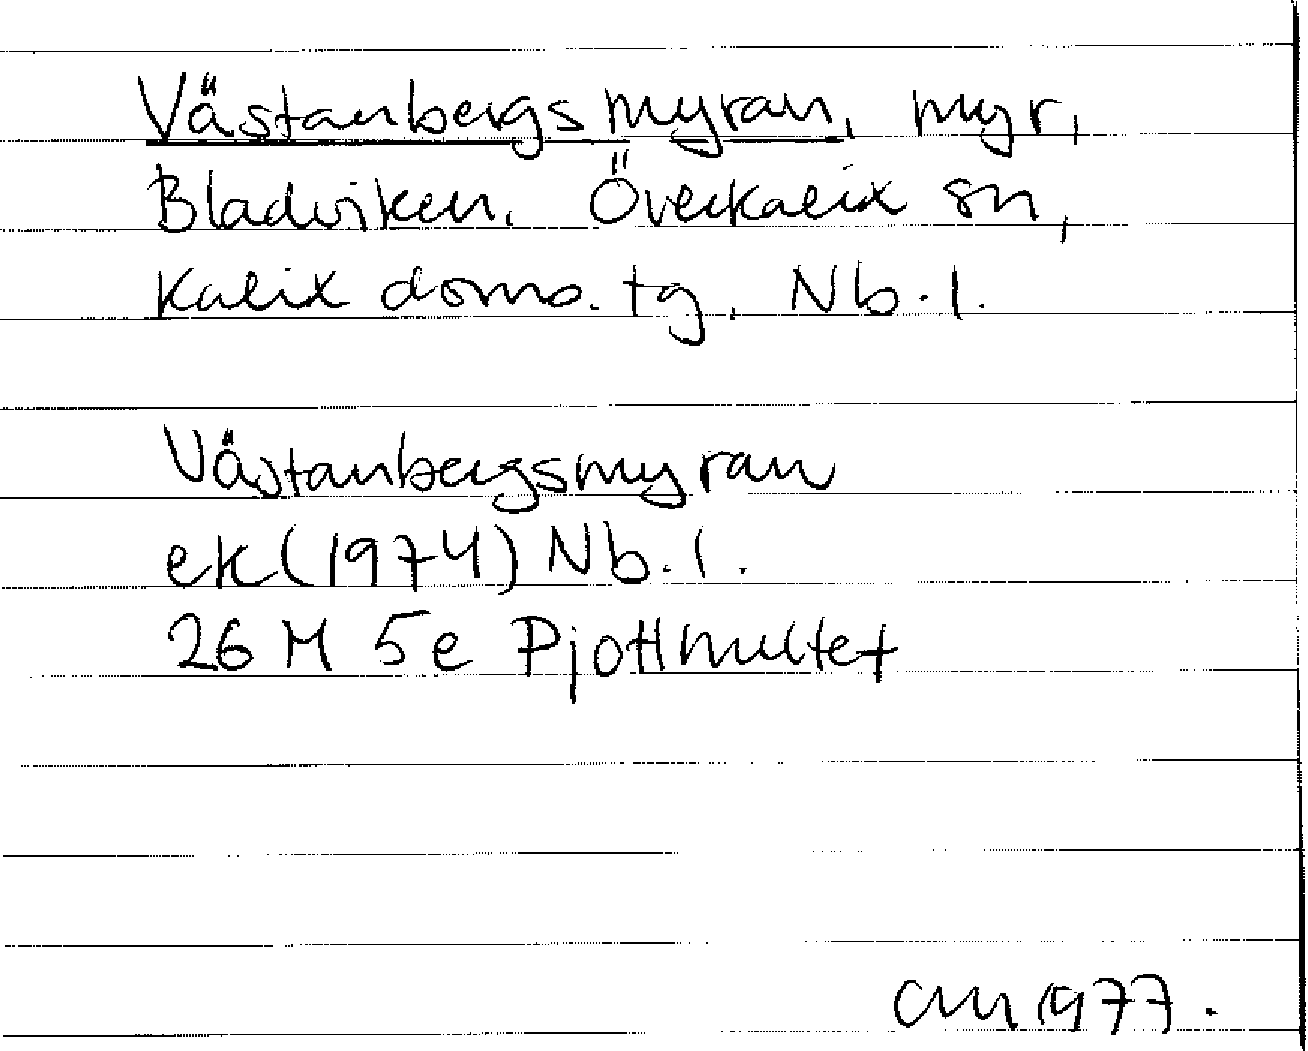 Västanbergsmyran, myr,
Bladviken. Överkalix sn,
Kalix doms. tg. Nb. l.
Västanbergsmyran
ek (1974) Nb. l.
26 M 5e Pjottmultet
CM 1977.